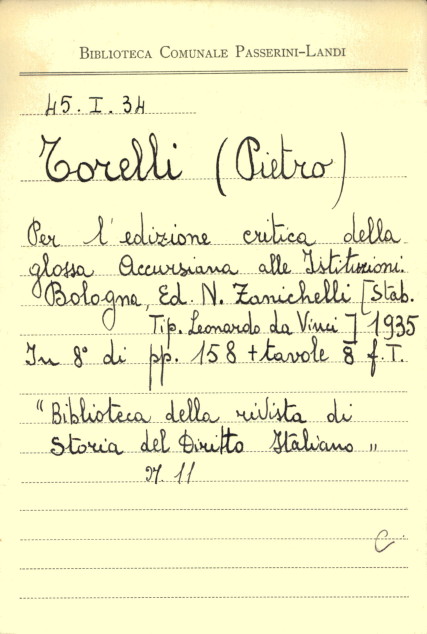 BIBLIOTECA COMUNALE PASSERINI-LANDI
45. I. 34
Torelli (Pietro)
Per l'edizione critica della
glossa Accursiana alle Istituzioni.
Bologna, Ed. N. Zanichelli [Stab.
Tip. Leonardo da Vinci] 1935
In 8° di pp. 158 + tavole 8 f. T.
"Biblioteca della rivista di
Storia del Diritto Italiano„
N. 11
C.